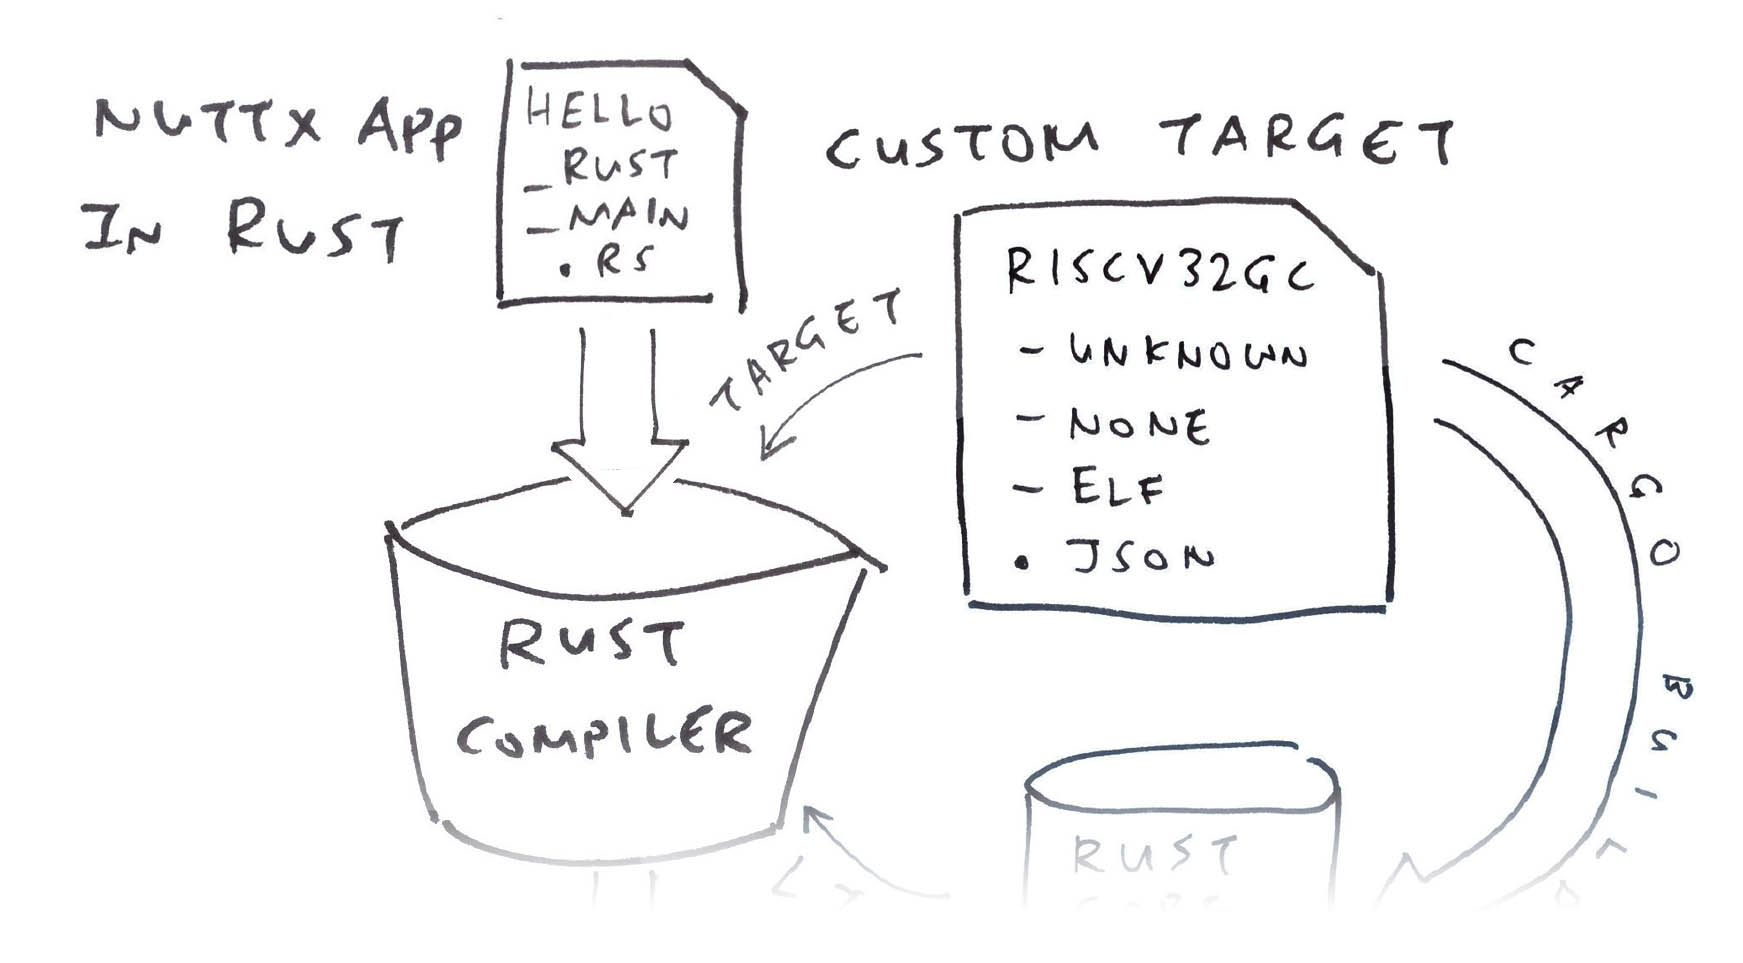 NUTTX APP
IN RUST
HELLO
_RUST
_MAIN
.RS
CUSTOM TARGET
RISCV32GC
- UNKNOWN
- NONE
- ELF
. JSON
TARGET
CARGO BUIL
RUST
COMPILER
RUST